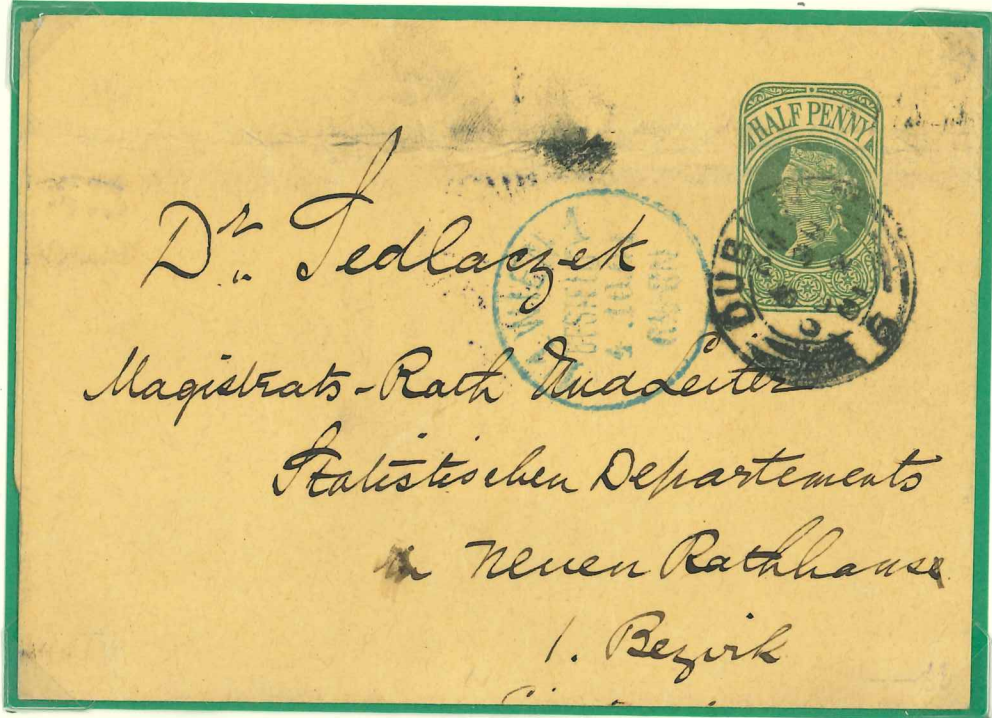 HALF PENNY
Dr. Sedlaczek
DUBL
Magistrats-Rath und Leiter
Statistischen Departements
neuen Rathhause
1. Bezirk